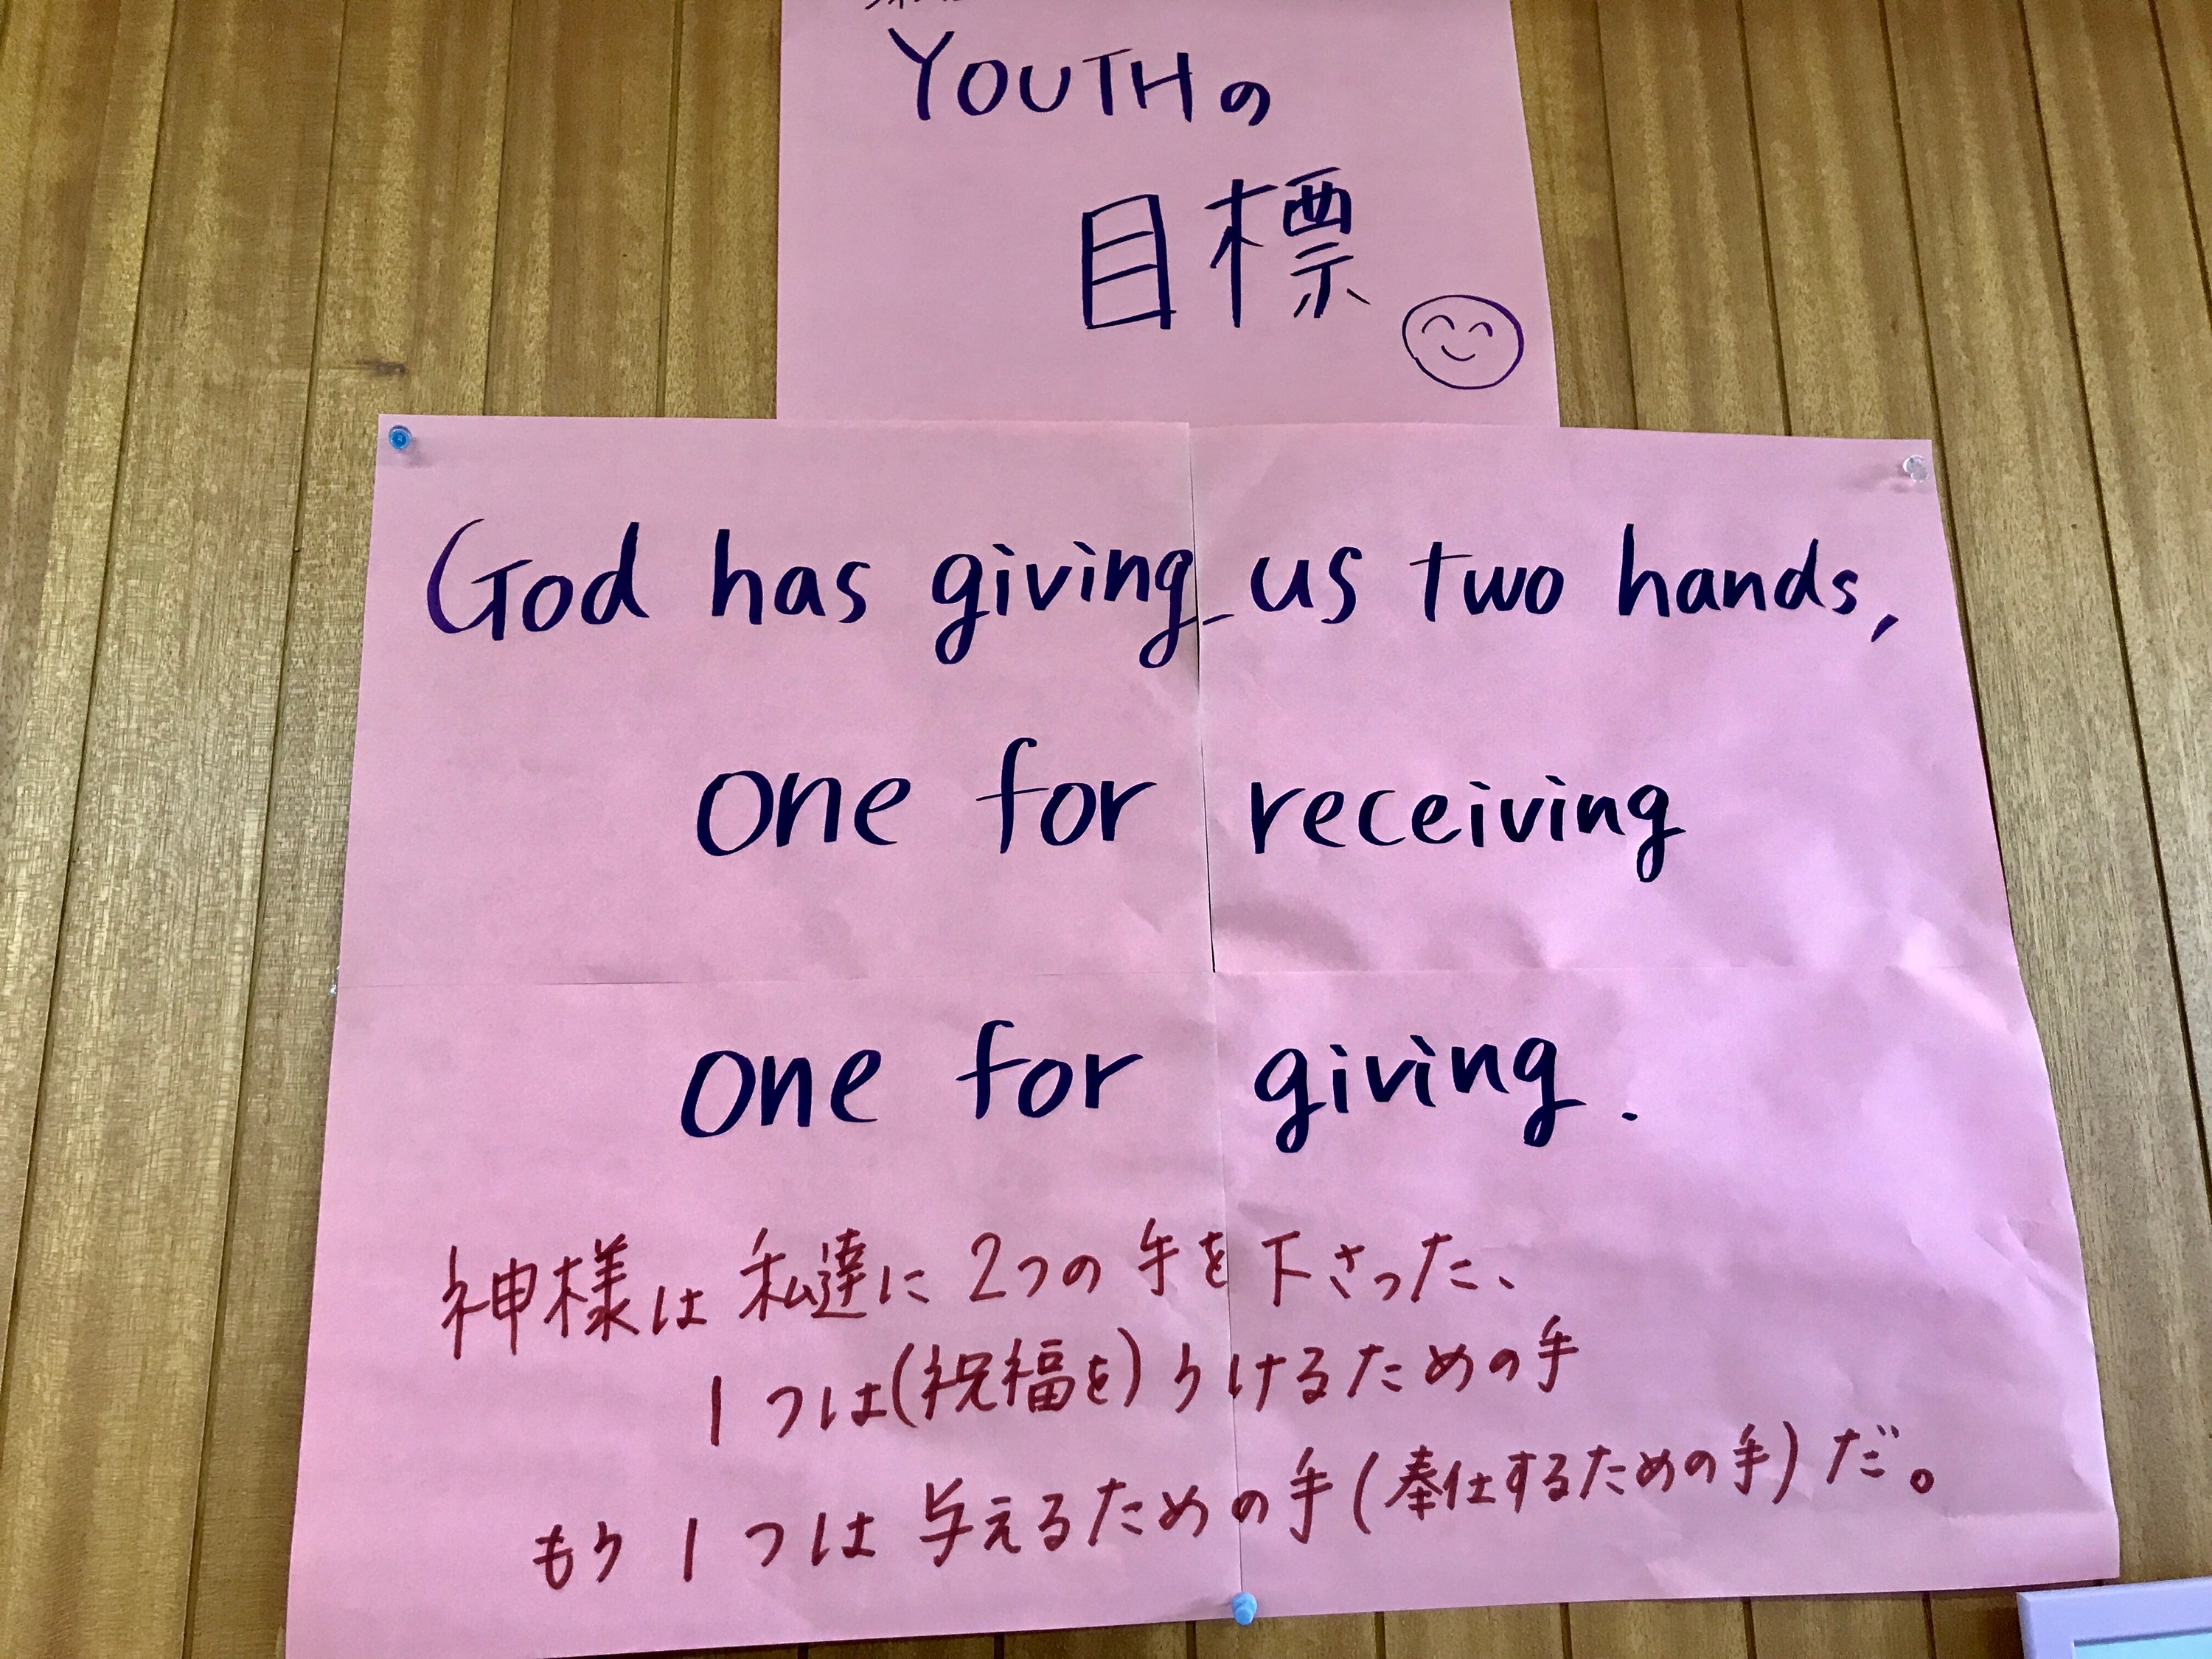 YOUTHの
目標
God has giving us two hands,
one for receiving
one for giving.
神様は私達に2つの手を下さった、
1つは(祝福を)うけるための手
もう1つは与えるための手(奉仕するための手)だ。